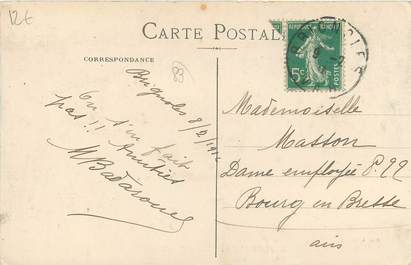 12€
CARTE POSTALE
CORRESPONDANCE
83
5c
POSTES
Brignoles 8/2/1912
On s'en fait
pas!! Amitiés
MBadaroux
Mademoiselle
Masson
Dame employée P.TT
Bourg en Bresse
ain